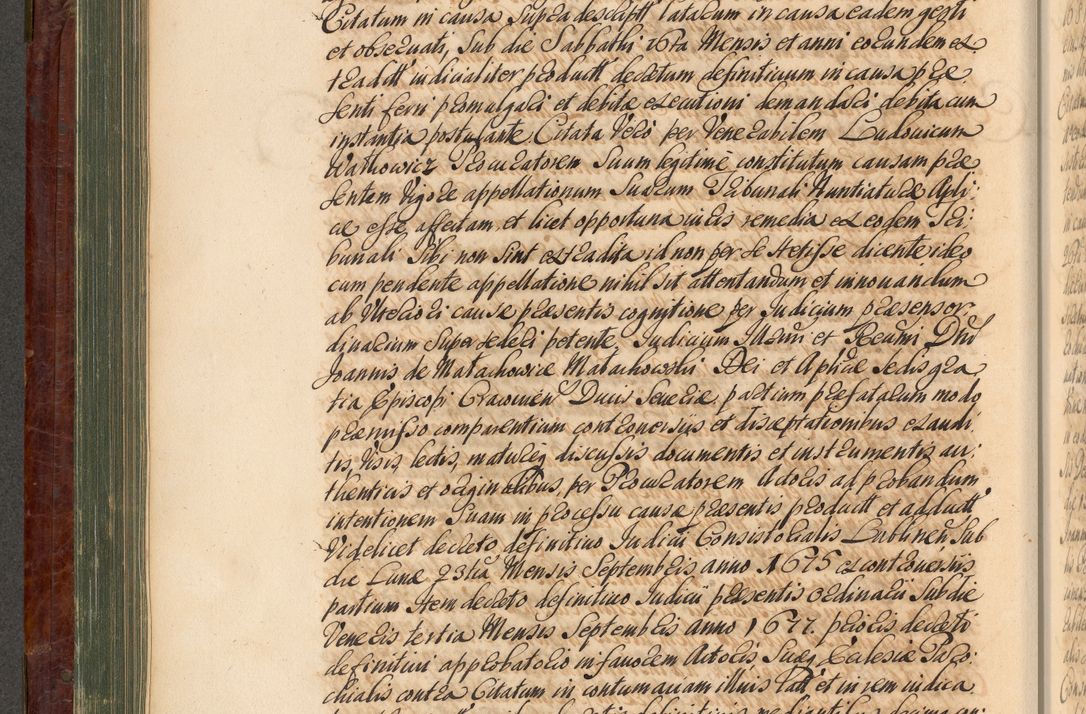 Citatum in causa supra descriptt latarum in causa eadem gesti
et obsecuati, Sub die Sabbathi 16ta Mensis et anni eorundem ex,
traditt iudicialiter productt decretum definitivum in causa præ
senti ferri promulgari et debitæ executioni demandari debita cum
instantia postulante. Citata Vero per Venerabilem Ludovicum
Watkowicz Procuratorem Suum legitimè constitutum causam præ
sentem Vigore appellationum Suarum Tribunali Nuntiaturæ Apli
cæ esse affectam, et licet opportuna iuris remedia ex eodem Tri,
bunali Sibi non sint extradita id non per se stetisse dicente ideo
cum pendente appellatione nihil sit attentandum et innovandum
ab Ulteriori causæ præsentis cognitione per Judicium præsens or
dinarium Supersederi petente. Judicium Illmi et Rndmi Dni
Joannis de Małachowice Małachowski Dei et Aplicæ Sedis gra,
tia Episcopi Cracovien Ducis Severiæ, partium præfatarum modo
præmisso comparentium controversiis et disceptationibus exaudi,
tis, Visis, lectis, matureq discussis documentis et instrumentis au,
thenticis et originalibus, per Procuratorem Actoris ad probandum
intentionem Suam in processu causæ præsentis productt et adductt
Videlicet decreto definitivo Judicii Consistorialis Lublinen Sub
die Lunæ 23tia Mensis Septembris anno 1675 ex controversiis
partium Item decreto definitivo Judicii præsentis Ordinarii Sub die
Veneris tertia Mensis Septembris anno 1677. prioris decreti
definitivi approbatorio in favorem Actoris, Suæq Ecclesiæ Paro,
chialis contra Citatum in contumaciam illius latt, et in rem iudica